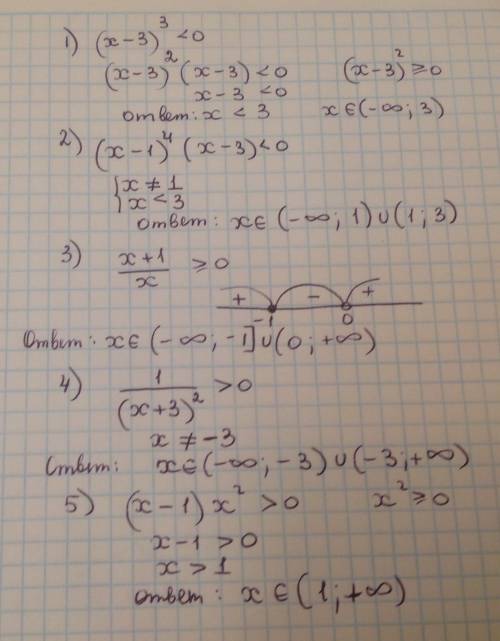 1) (x-3)³ <0
(x-3)² (x-3) <0 (x-3)² ≥0
x-3 <0
ответ: x < 3 x∈(-∞; 3)
2) (x-1)⁴ (x-3)<0
{x ≠ 1
x < 3
ответ: x∈ (-∞; 1)∪(1; 3)
3) (x+1)/x ≥0
+ - +
-1 0
Ответ: x∈ (-∞; -1]∪(0; +∞)
4) 1/(x+3)² >0
x ≠ -3
Ответ: x∈(-∞; -3) ∪(-3;+∞)
5) (x-1) x² >0 x² ≥0
x-1 >0
x > 1
ответ: x ∈ (1;+∞)